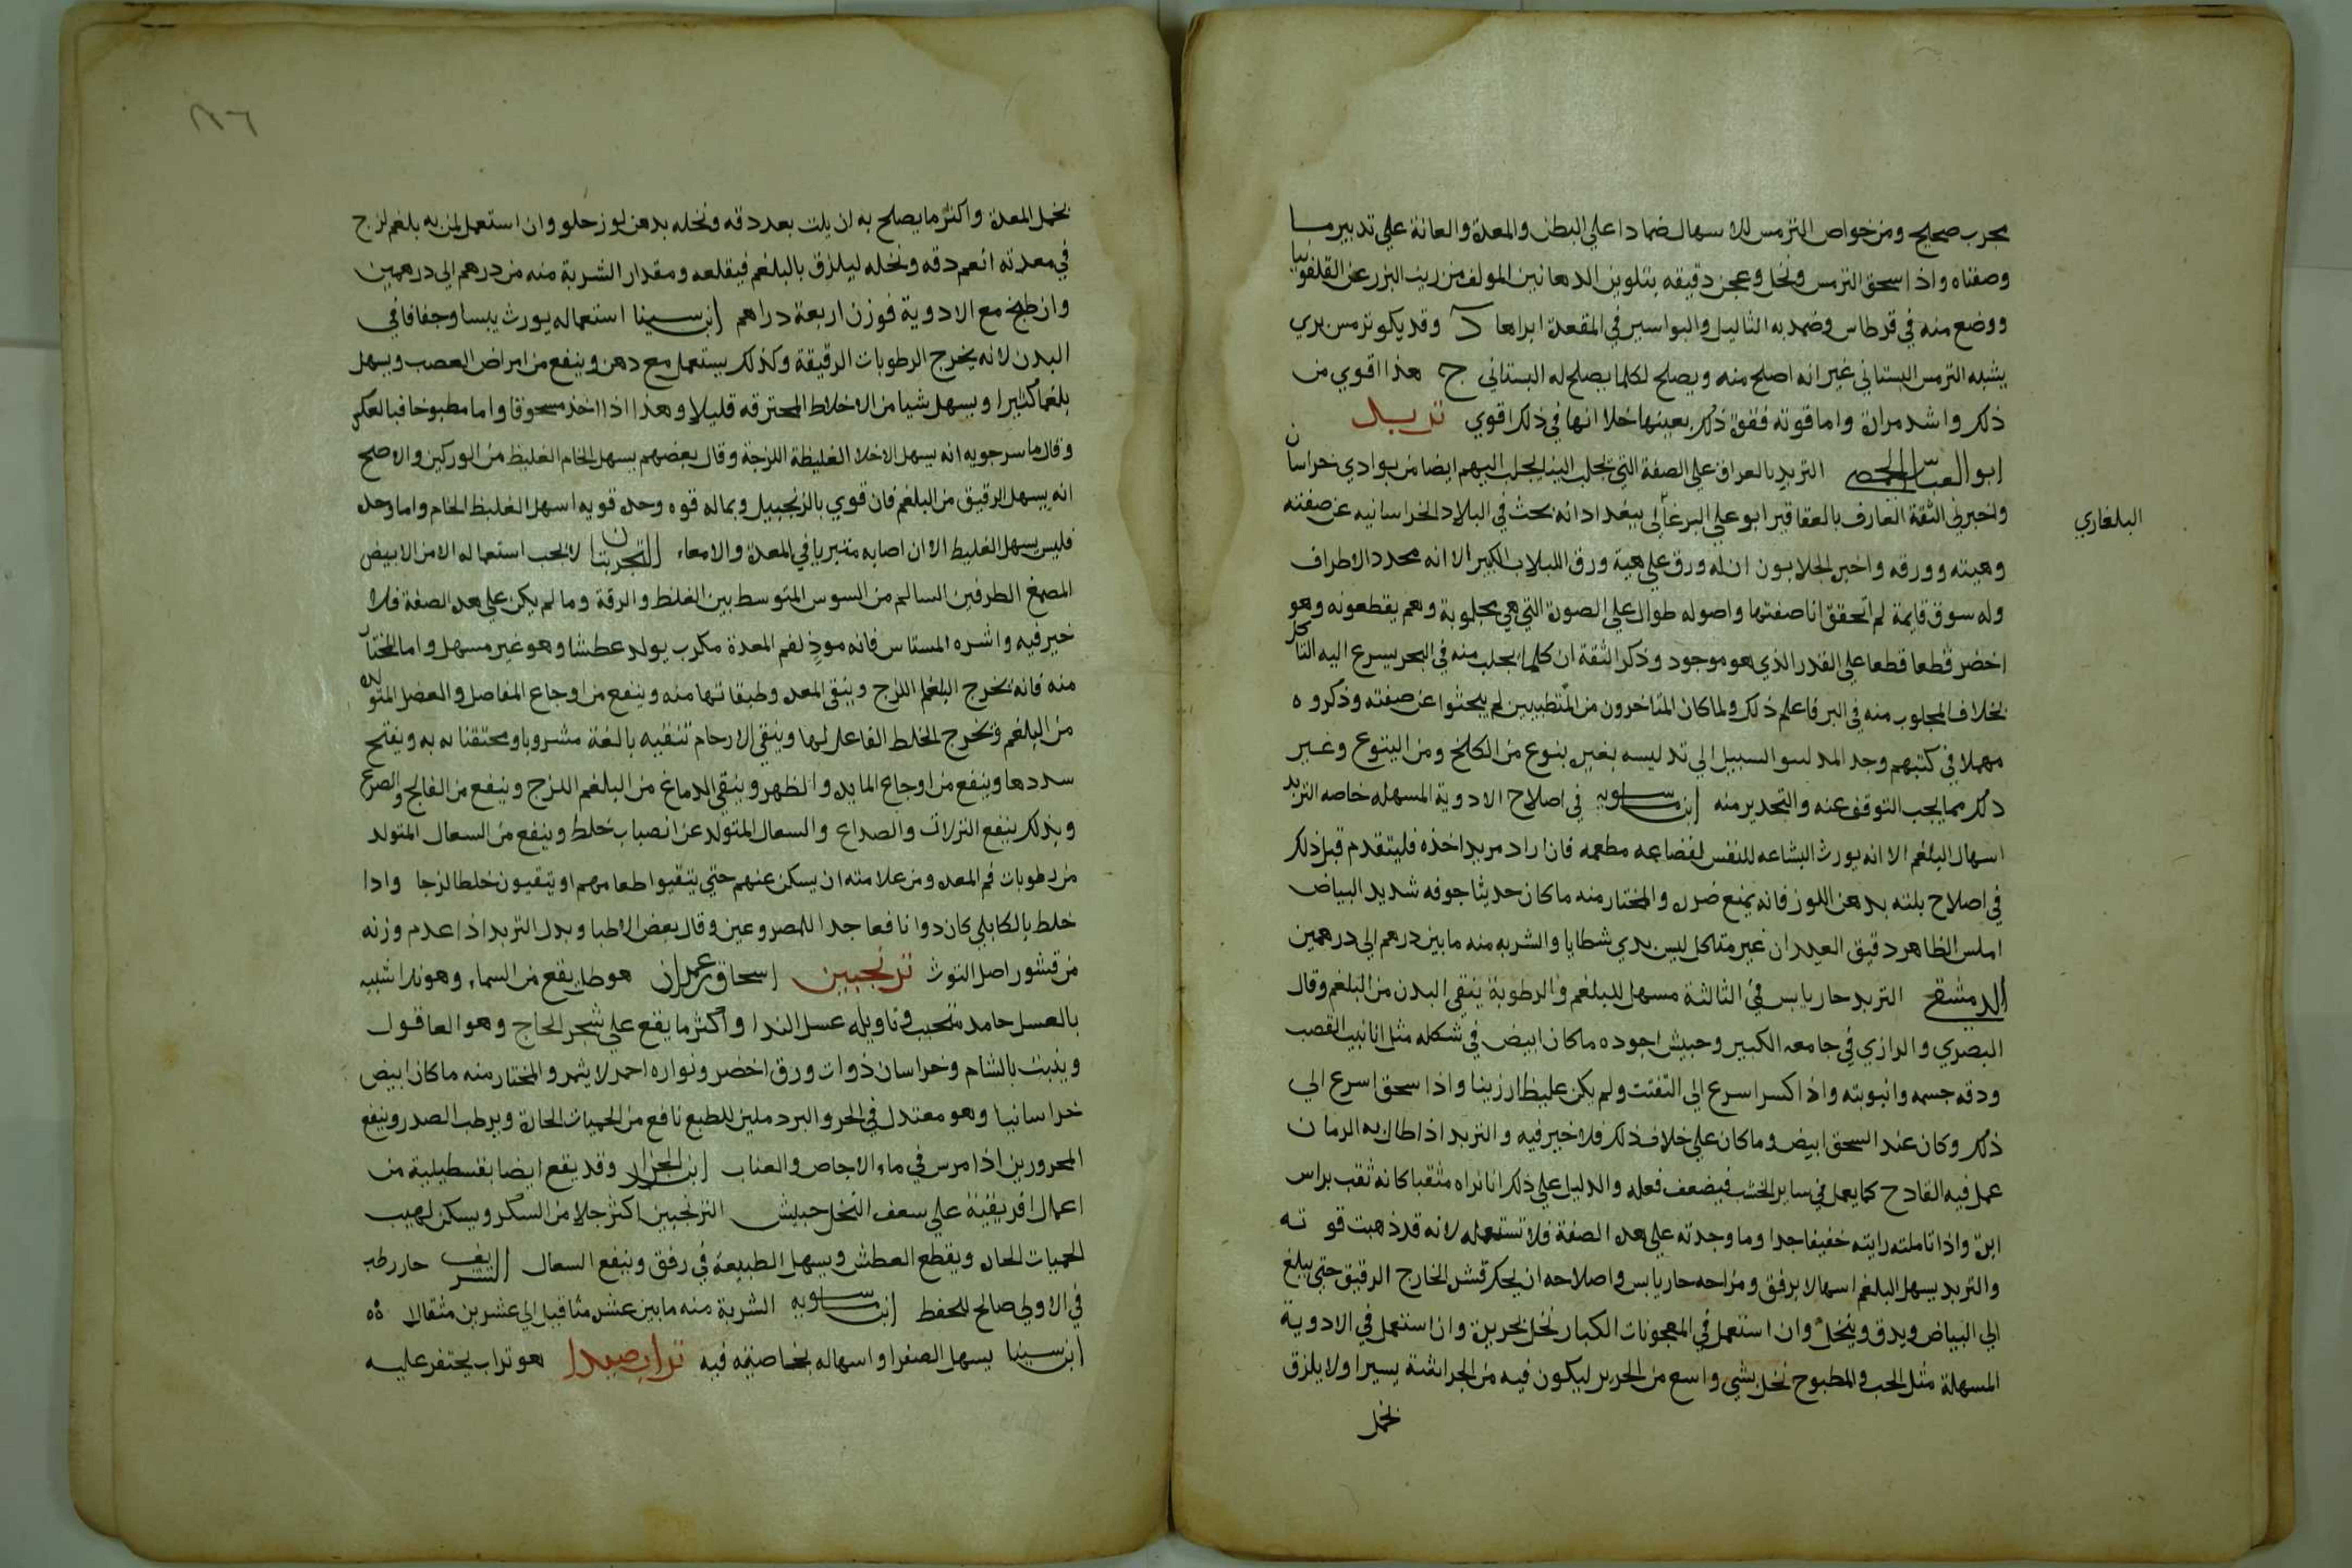 مجرب صحيح ومن خواص الترمس للاسهال ضمادا علي البطن والمعدة والعانة علي تدبير ما
وصفناه واذا سحق الترمس ونخل وعجن دقيقه بتلوين الدهانين المولف من زيت البزر عن القلفونيا
ووضع منه في قرطاس وضمد به الثاليل والبواسير في المقعدة ابراها د وقد يكو ترمس بري
يشبه الترمس البستاني غير انه اصلح منه ويصلح لكلما يصلح له البستاني ج هذا اقوي من
ذلك واشد مرارة واما قوته فقوة ذلك بعينها خلا انها في ذلك اقوي تربد
ابو العباس الحمصي التربد بالعراق علي الصفة التي تجلب الينا يجلب اليهم ايضا من بوادي خراسان
واخبرني الثقة العارف بالعقاقير ابو علي البرغالي ببغداد انه بحث في البلاد الخراسانيه عن صفته
البلغاري
وهيته وورقه واخبر الجلابون ان له ورق علي هية ورق اللبلاب الكبير الا انه محدد الاطراف
وله سوق قايمة لم اتحقق انا صفتها واصوله طوال علي الصورة التي هي مجلوبة وهم يقطعونه وهو
اخضر قطعا قطعا علي القدر الذي هو موجود وذكر الثقة ان كلما يجلب منه في البحر يسرع اليه التاكل
بخلاف المجلوب منه في البر فاعلم ذلك ولما كان المتاخرون من المتطببين لم يبحثوا عن صفته وذكروه
مهملا في كتبهم وجد المدلسو السبيل الي تدليسه بغير بنوع من الكلخ ومن اليتوع وغير
ذلك مما يجب التوقف عنه والتحدير منه ابن ماسويه في اصلاح الادوية المسهله خاصه التربد
اسهال البلغم الا انه يورث البشاعه للنفس لفضاعه مطعمه فان اراد مريد اخذه فليتقدم قبل ذلك
في اصلاح بلته بدهن اللوز فانه يمنع ضرره والمختار منه ما كان حديثا جوفه شديد البياض
املس الظاهر دقيق العيدان غير متاكل ليس بدي شظايا والشربه منه ما بين درهم الي درهمين
الدمشقي التربد حار يابس في الثالثة مسهل للبلغم والرطوبة ينقي البدن من البلغم وقال
البصري والرازي في جامعه الكبير وحبيش اجوده ما كان ابيض في شكله مثل انابيب القصب
ودقه جسمه وانبوبته واذا كسر اسرع الي التفتت ولم يكن غليظا رزينا واذا سحق اسرع الي
ذلك وكان عند السحق ابيض وما كان علي خلاف ذلك فلا خير فيه والتربد اذا طال به الزمان
عمل فيه القادح كما يعمل في ساير الخشب فيضعف فعله والدليل علي ذلك انا نراه مثقبا كانه ثقب براس
ابرة واذا تاملته رايته خفيفا جدا وما وجدته علي هده الصفة فلا تستعمله لانه قد ذهبت قوته
والتربد يسهل البلغم اسهالا برفق ومزاجه حار يابس واصلاحه ان يحك قشره الخارج الرقيق حتي يبلغ
الي البياض ويدق وينخل وان استعمل في المعجونات الكبار نخل بحريرة وان استعمل في الادوية
المسهلة مثل الحب والمطبوخ نخل بشي واسع من الحرير ليكون فيه من الجراشة يسيرا ولا يلزق
بخمل
١٨٦
بخمل المعدة واكثر ما يصلح به ان يلت بعد دقه ونخله بدهن لوز حلو وان استعمل لمن به بلغم لزج
في معدته انعم دقه ونخله ليلزق بالبلغم فيقلعه ومقدار الشربة منه من درهم الي درهمين
وان طبخ مع الادوية فوزن اربعة دراهم ابن سينا استعماله يورث يبسا وجفافا في
البدن لانه يخرج الرطوبات الرقيقة وكذلك يستعمل مع دهن وينفع من امراض العصب ويسهل
بلغما كثيرا ويسهل شيا من الاخلاط المحترقه قليلا وهذا اذا اخذ مسحوقا واما مطبوخا فبالعكس
وقال ماسرجويه انه يسهل الاخلاط الغليظة اللزجة وقال بعضهم يسهل الخام الغليظ من الوركين والاصح
انه يسهل الرقيق من البلغم فان قوي بالزنجبيل وبماله قوه وحده قويه اسهل الغليظ الخام واما وحده
فليس يسهل الغليظ الا ان اصابه متبريا في المعدة والامعاء التجربتان لا يجب استعماله الا من الابيض
المصمغ الطرفين السالم من السوس المتوسط بين الغلظ والرقة وما لم يكن علي هده الصفة فلا
خير فيه واشره المستاس فانه موذ لفم المعدة مكرب يولد عطشا وهو غير مسهل واما المختار
منه فانه يخرج البلغم اللزج وينقي المعده وطبقاتها منه وينفع من اوجاع المفاصل والعضل المتولده
من البلغم ويخرج الخلط الفاعل لها وينقي الارحام تنقيه بالغة مشروبا ومحتقنا به ويفتح
سددها وينفع من اوجاع المايده والظهر وينقي الدماغ من البلغم اللزج وينفع من الفالج والصرع
وبذلك ينفع النزلات والصداع والسعال المتولد عن انصباب خلط وينفع من السعال المتولد
من رطوبات فم المعده ومن علامته ان يسكن عنهم حتي يتقيوا طعامهم او يتقيون خلطا لزجا واذا
خلط بالكابلي كان دوا نافعا جدا للمصروعين وقال بعض الاطبا وبدل التربد اذا عدم وزنه
من قشور اصل التوث ترنجبين اسحاق بن عمران هو طل يقع من السماء وهو ندا شبيه
بالعسل جامد متحبب وتاويله عسل الندا واكثر ما يقع علي شجر الحاج وهو العاقول
وينبت بالشام وخراسان ذوات ورق اخضر ونواره احمر لا يثمر والمختار منه ما كان ابيض
خراسانيا وهو معتدل في الحر والبرد ملين للطبع نافع من الحميات الحارة ويرطب الصدر وينفع
المحرورين اذا مرس في ماء الاجاص والعناب ابن الجزار وقد يقع ايضا بقسطيلية من
اعمال افريقية علي سعف النخل حبيش الترنجبين اكثر جلا من السكر ويسكن لهيب
الحميات الحاره ويقطع العطش ويسهل الطبيعة في رفق وينفع السعال الشريف حار رطب
في الاولي صالح للحفظ ابن ماسويه الشربة منه ما بين عشر مثاقيل الي عشرين مثقالا
ابن سينا يسهل الصفرا واسهاله بخاصيته فيه تراب صيدا هو تراب يحتفر عليه